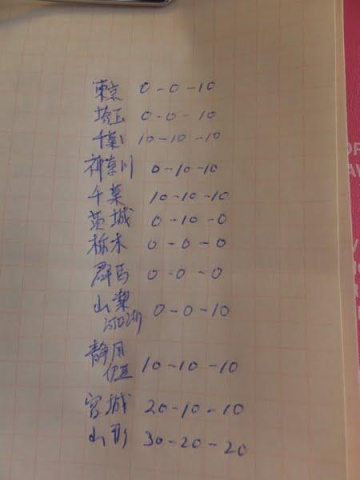 東京 0-0-10
埼玉 0-0-10
千葉 10-10-10
神奈川 0-10-10
千葉 10-10-10
茨城 0-10-0
栃木 0-0-0
群馬 0-0-0
山梨 0-0-10
静岡
伊豆 10-10-10
宮城 20-10-10
山形 30-20-20